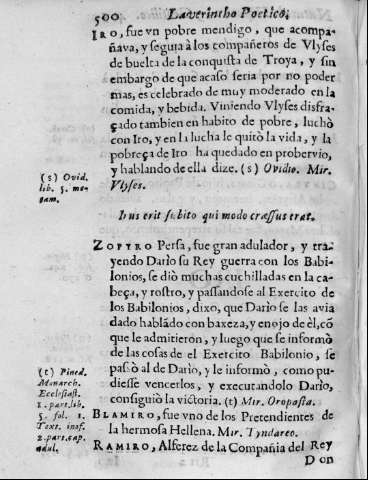 500 Laverintho Poetico;
IRO, fue vn pobre mendigo, que acompa-
ñava, y seguia à los compañeros de Vlyses
de buelta de la conquista de Troya, y sin
embargo de que acaso seria por no poder
mas, es celebrado de muy moderado en la
comida, y bebida. Viniendo Vlyses disfra-
çado tambien en habito de pobre, luchò
con Iro, y en la lucha le quitò la vida, y la
pobreça de Iro ha quedado en probervio,
y hablando de ella dize. (s) Ovidio. Mir.
Vlyses.
(s) Ovid.
lib. 5. me-
tam.
Irus erit subito qui modo cræssus erat.
ZOPYRO Persa, fue gran adulador, y tra-
yendo Darìo su Rey guerra con los Babi-
lonios, se diò muchas cuchilladas en la ca-
beça, y rostro, y passandose al Exercito de
los Babilonios, dixo, que Darìo se las avia
dado hablãdo con baxeza, y enojo de èl, cõ
que le admitieron, y luego que se informò
de las cosas de el Exercito Babilonio, se
passò al de Darìo, y le informò, como pu-
diesse vencerlos, y executandolo Darìo,
consiguiò la victoria. (t) Mir. Oropasta.
(t) Pined.
Monarch.
Ecclesiast.
1. part. lib.
5. fol. 1.
Text. inof.
2. part. cap.
adul.
BLAMIRO, fue vno de los Pretendientes de
la hermosa Hellena. Mir. Tyndareo.
RAMIRO, Alferez de la Compañia del Rey
Don